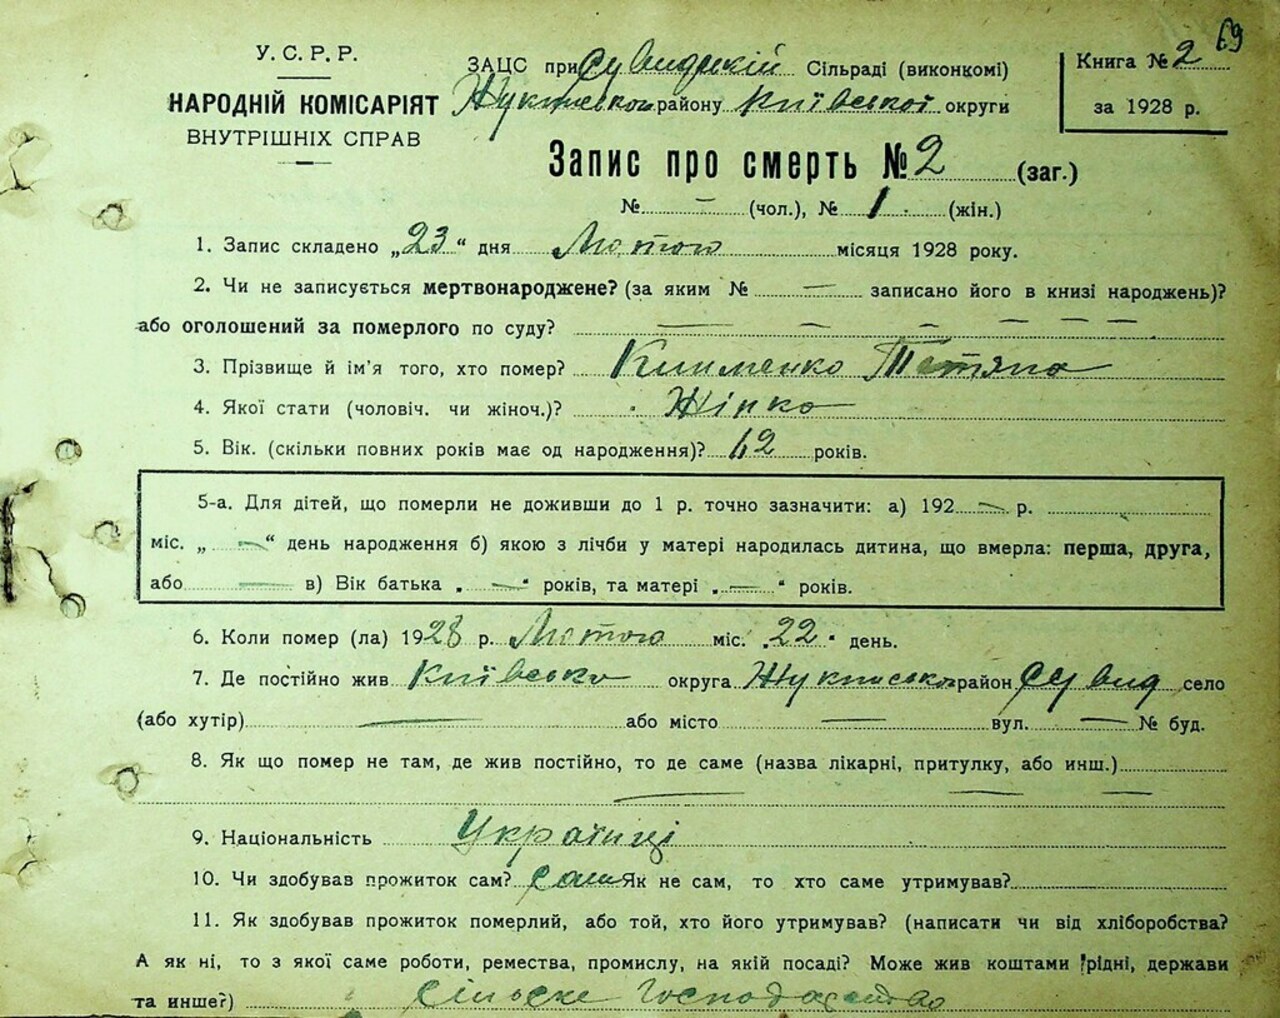 69
У. С. Р. Р.
НАРОДНІЙ КОМІСАРІЯТ
ВНУТРІШНІХ СПРАВ
ЗАЦС при Сувидській Сільраді (виконкомі)
Жукинського району Київської округи
Книга № 2
за 1928 р.
Запис про смерть № 2 (заг.)
№ – (чол.), № 1. (жін.)
1. Запис складено „23" дня Лютого місяця 1928 року.
2. Чи не записується мертвонароджене? (за яким № — записано його в книзі народжень)?
або оголошений за померлого по суду? — — — — — —
3. Прізвище й ім'я того, хто помер? Клименко Тетяна
4. Якої стати (чоловіч. чи жіноч.)? Жінка
5. Вік. (скільки повних років має од народження)? 62 років.
5-а. Для дітей, що померли не доживши до 1 р. точно зазначити: а) 192 — р.
міс. „ — " день народження б) якою з лічби у матері народилась дитина, що вмерла: перша, друга,
або — в) Вік батька „ — " років, та матері „ — " років.
6. Коли помер (ла) 1928 р. Лютого міс. „22" день.
7. Де постійно жив Київська округа Жукинський район Сувид село
(або хутір) — або місто — вул. — № буд.
8. Як що помер не там, де жив постійно, то де саме (назва лікарні, притулку, або инш.)
— — —
9. Національність Українці
10. Чи здобував прожиток сам? Сам Як не сам, то хто саме утримував?
11. Як здобував прожиток померлий, або той, хто його утримував? (написати чи від хліборобства?
А як ні, то з якої саме роботи, ремества, промислу, на якій посаді? Може жив коштами рідні, держави
та инше?) Сільске Господарство